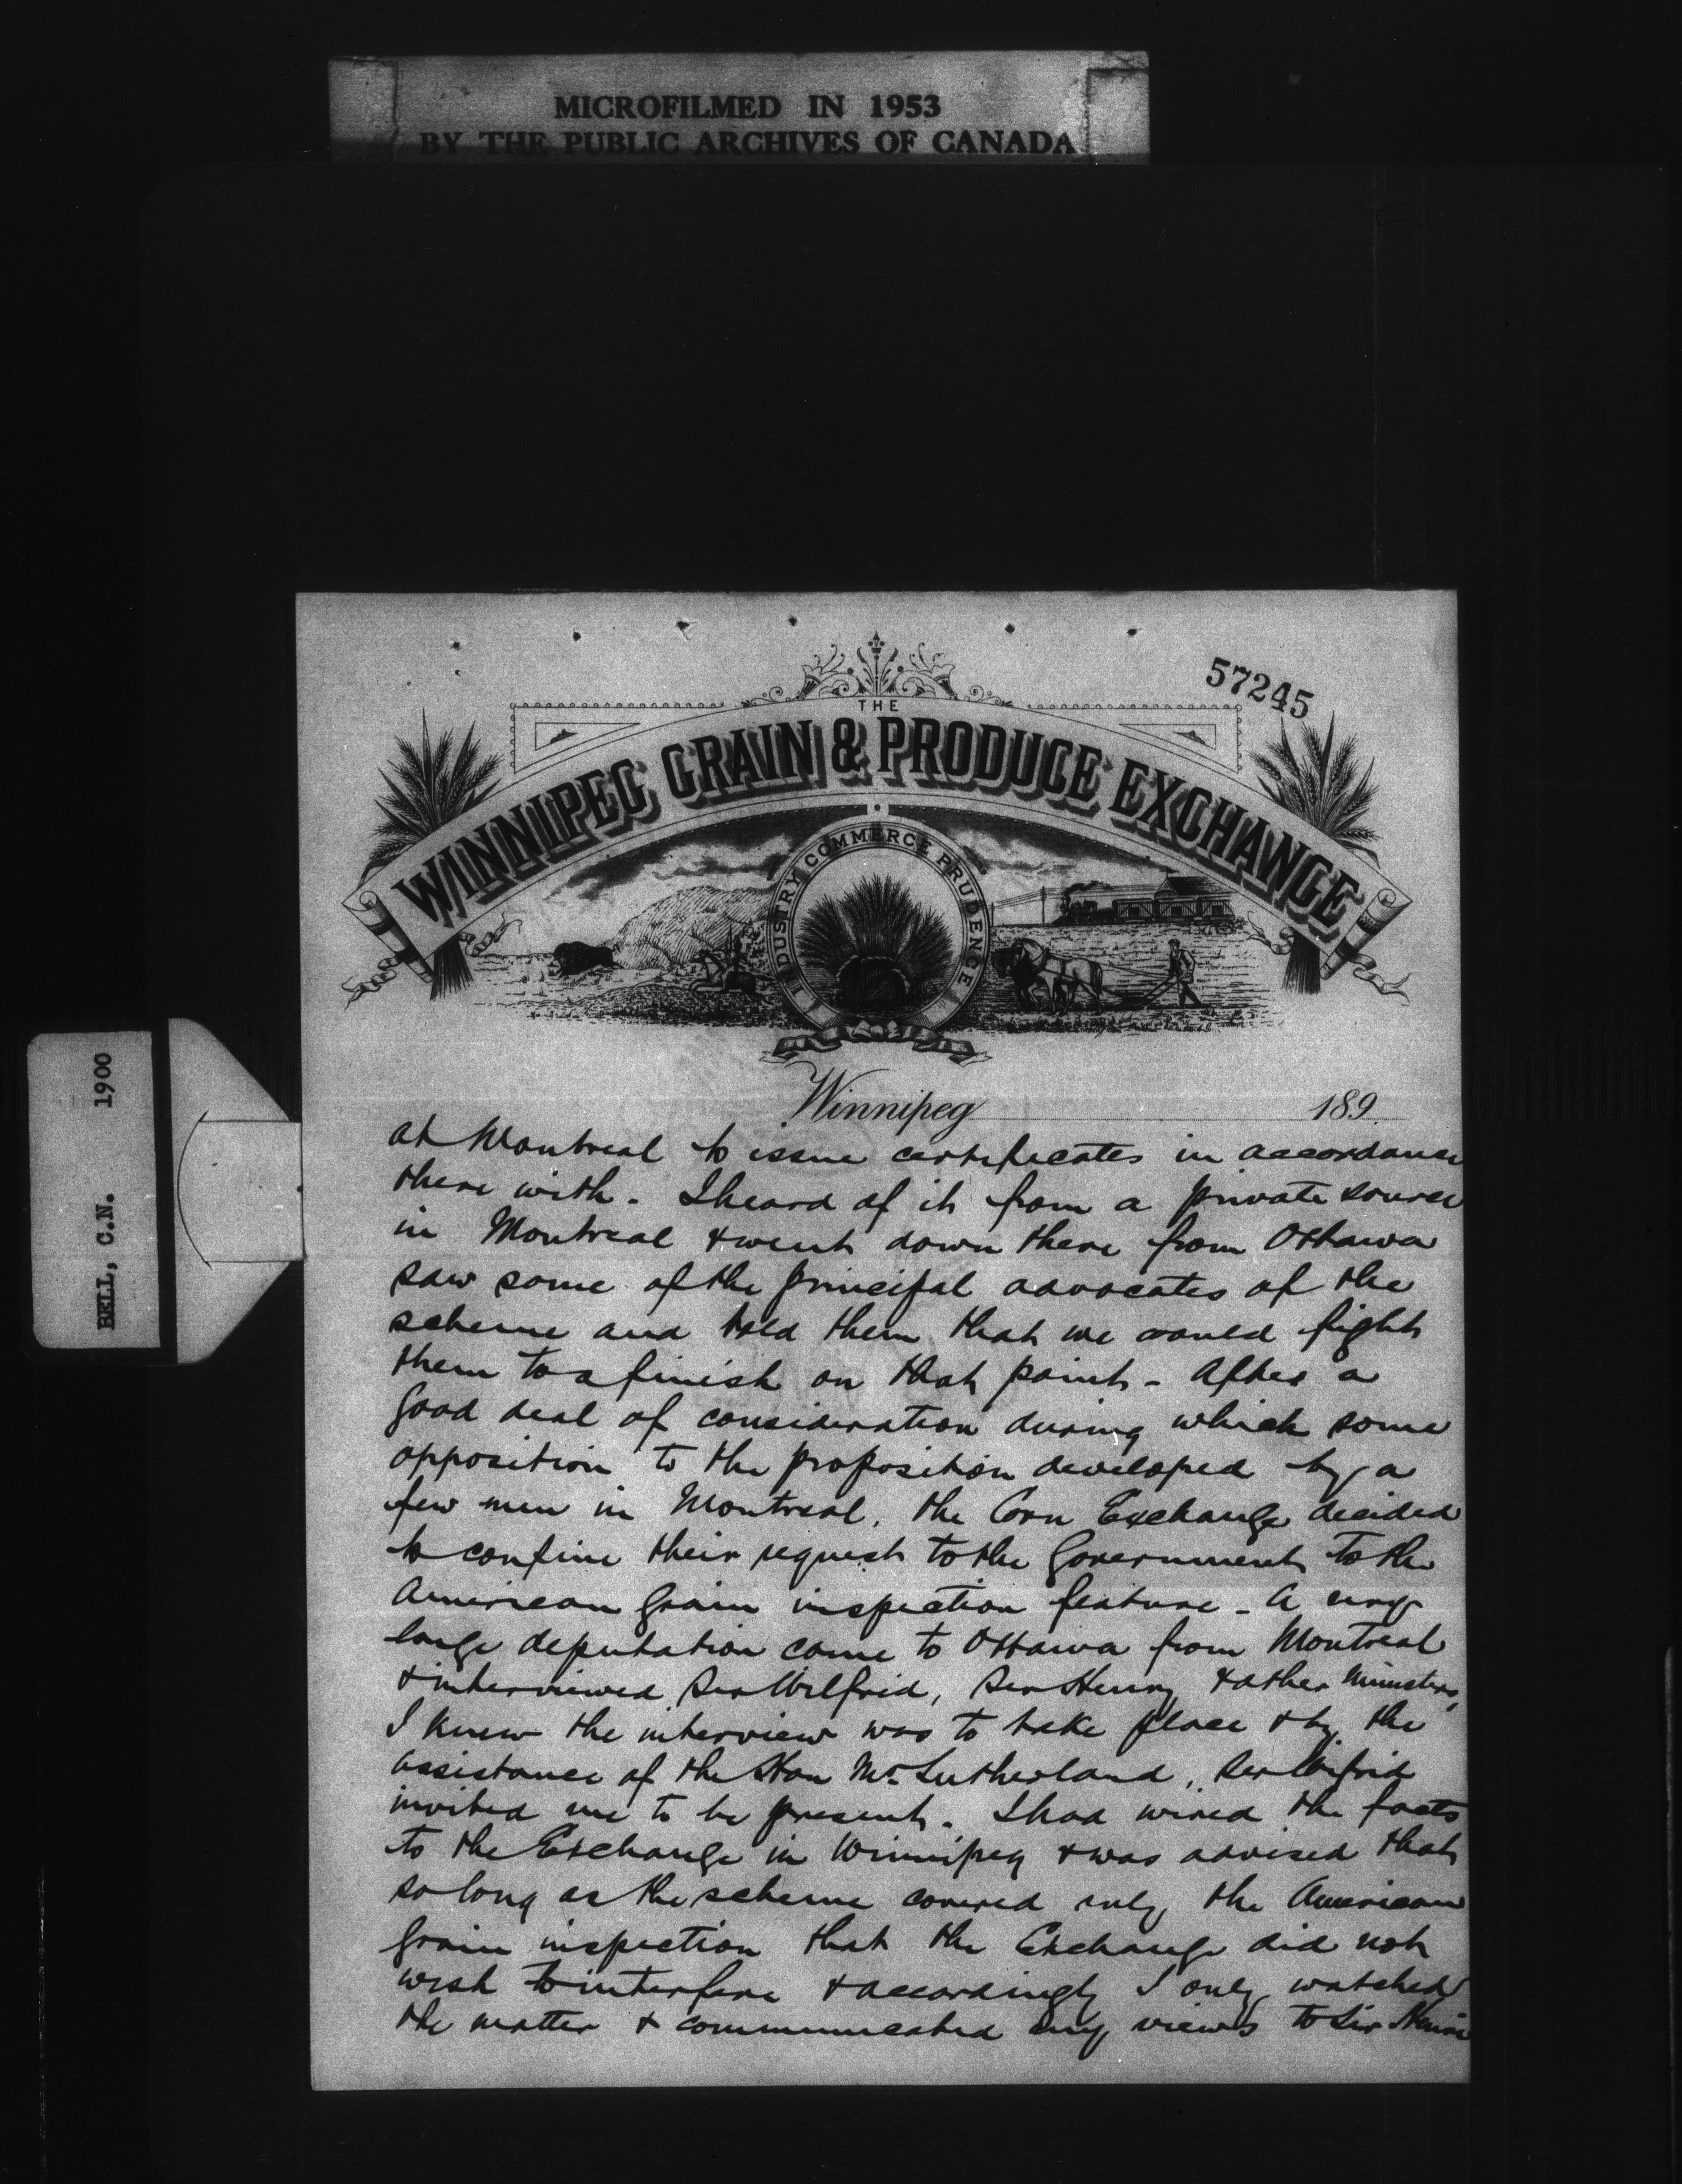 MICROFILMED IN 1953
BY THE PUBLIC ARCHIVES OF CANADA
57245
THE
WINNIPEG GRAIN & PRODUCE EXCHANGE
INDUSTRY COMMERCE PRUDENCE
BELL, C.N. 1900
Winnipeg 189
at Montreal to issue certificates in accordance
there with. I heard of it from a private source
in Montreal & went down there from Ottawa
saw some of the principal advocates of the
scheme and told them that we would fight
them to a finish on that point - After a
good deal of consideration during which some
opposition to the proposition developed by a
few men in Montreal, the Corn Exchange decided
to confine their request to the Government to the
American Grain inspection feature - A very
large deputation came to Ottawa from Montreal
& interviewed Sir Wilfrid, Sir Henry & other Ministers,
I knew the interview was to take place & by the
assistance of the Hon Mr Sutherland, Sir Wilfrid
invited me to be present. I had wired the facts
to the Exchange in Winnipeg & was advised that
so long as the scheme covered only the American
Grain inspection that the Exchange did not
wish to interfere & accordingly I only watched
the matter & communicated my views to Sir Henri